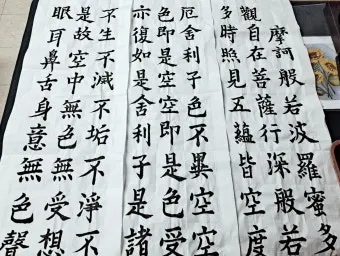 摩訶般若波羅蜜多
觀自在菩薩行深般若
多時照見五蘊皆空度
厄舍利子色不異空空
色即是空空即是色受
亦復如是舍利子是諸
不生不滅不垢不淨不
是故空中無色無受想
眼耳鼻舌身意無色聲